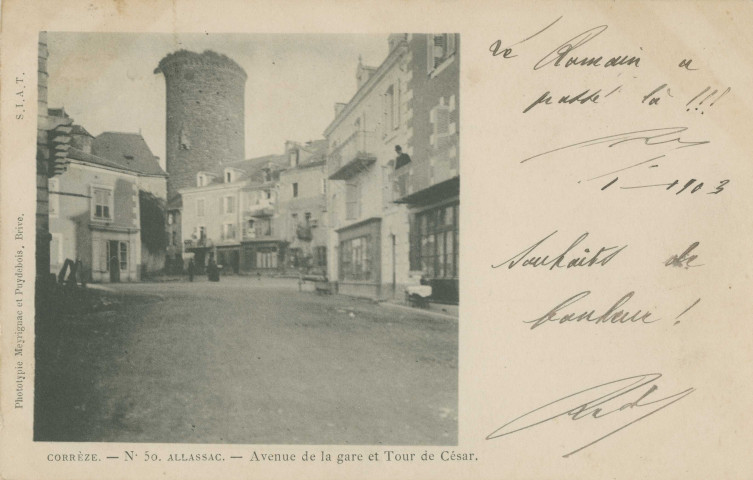 S.I.A.T.
Phototypie Meyrignac et Puydebois, Brive.
CORRÈZE. — N° 50. ALLASSAC. — Avenue de la gare et Tour de César.
Le Romain a
passé là !!!
1 - 1903
Souhaits de
bonheur !